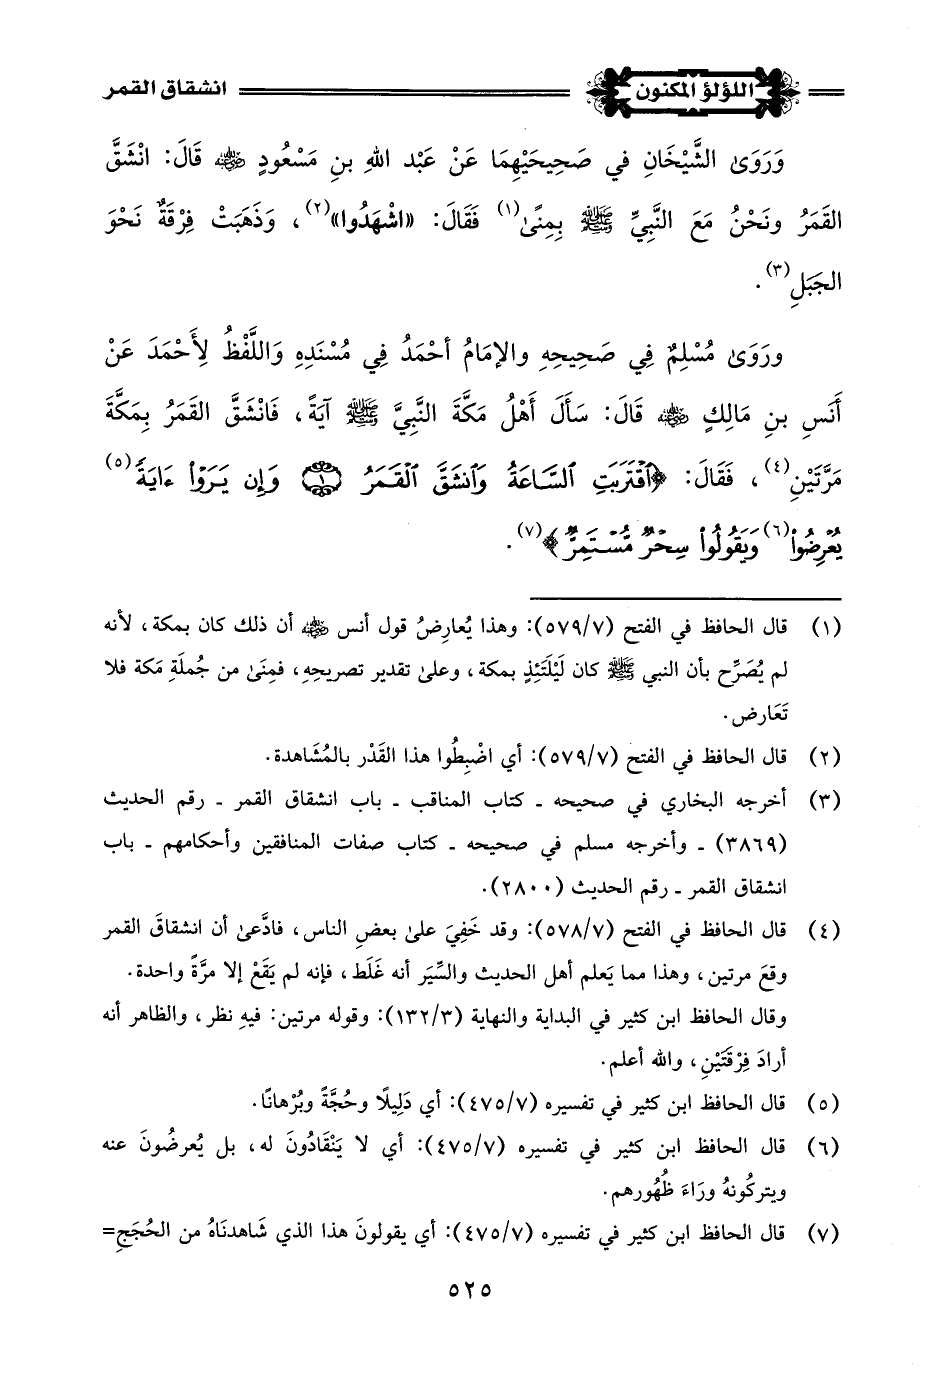 اللؤلؤ المكنون
انشقاق القمر
وَرَوَىٰ الشَّيْخَانِ في صَحِيحَيْهِمَا عَنْ عَبْد اللهِ بنِ مَسْعُودٍ رضي الله عنه قَالَ: انْشَقَّ
القَمَرُ ونَحْنُ مَعَ النَّبِيِّ ﷺ بِمِنًىٰ(١) فَقَالَ: «اشْهَدُوا»(٢)، وَذَهَبَتْ فِرْقَةٌ نَحْوَ
الجَبَلِ(٣).
ورَوَىٰ مُسْلِمٌ فِي صَحِيحِهِ والإمَامُ أحْمَدُ فِي مُسْنَدِهِ وَاللَّفْظُ لِأَحْمَدَ عَنْ
أَنَسِ بنِ مَالِكٍ رضي الله عنه قَالَ: سَأَلَ أَهْلُ مَكَّةَ النَّبِيَّ ﷺ آيَةً، فَانْشَقَّ القَمَرُ بِمَكَّةَ
مَرَّتَيْنِ(٤)، فَقَالَ: ﴿ٱقْتَرَبَتِ ٱلسَّاعَةُ وَٱنشَقَّ ٱلْقَمَرُ ۝١ وَإِن يَرَوْا۟ ءَايَةً(٥)
يُعْرِضُوا۟(٦) وَيَقُولُوا۟ سِحْرٌ مُّسْتَمِرٌّ﴾(٧).
(١) قال الحافظ في الفتح (٥٧٩/٧): وهذا يُعارِضُ قول أنس رضي الله عنه أن ذلك كان بمكة، لأنه
لم يُصَرِّح بأن النبي ﷺ كان لَيْلَتَئِذٍ بمكة، وعلىٰ تقدير تصريحِهِ، فمِنَىٰ من جُملَةِ مَكة فلا
تَعَارض.
(٢) قال الحافظ في الفتح (٥٧٩/٧): أي اضْبِطُوا هذا القَدْر بالمُشَاهدة.
(٣) أخرجه البخاري في صحيحه - كتاب المناقب - باب انشقاق القمر - رقم الحديث
(٣٨٦٩) - وأخرجه مسلم في صحيحه - كتاب صفات المنافقين وأحكامهم - باب
انشقاق القمر - رقم الحديث (٢٨٠٠).
(٤) قال الحافظ في الفتح (٥٧٨/٧): وقد خَفِيَ علىٰ بعضِ الناس، فادَّعىٰ أن انشقاقَ القمر
وقعَ مرتين، وهذا مما يَعلم أهل الحديث والسِّيَر أنه غَلَط، فإنه لم يَقَعْ إلا مرَّةً واحدة.
وقال الحافظ ابن كثير في البداية والنهاية (١٣٢/٣): وقوله مرتين: فيهِ نظر، والظاهر أنه
أرادَ فِرْقَتَيْنِ، والله أعلم.
(٥) قال الحافظ ابن كثير في تفسيره (٤٧٥/٧): أي دَلِيلًا وحُجَّةً وبُرْهانًا.
(٦) قال الحافظ ابن كثير في تفسيره (٤٧٥/٧): أي لا يَنْقَادُونَ له، بل يُعرضُونَ عنه
ويتركُونهُ ورَاءَ ظُهُورهم.
(٧) قال الحافظ ابن كثير في تفسيره (٤٧٥/٧): أي يقولونَ هذا الذي شَاهدنَاهُ من الحُجَجِ=
٥٢٥